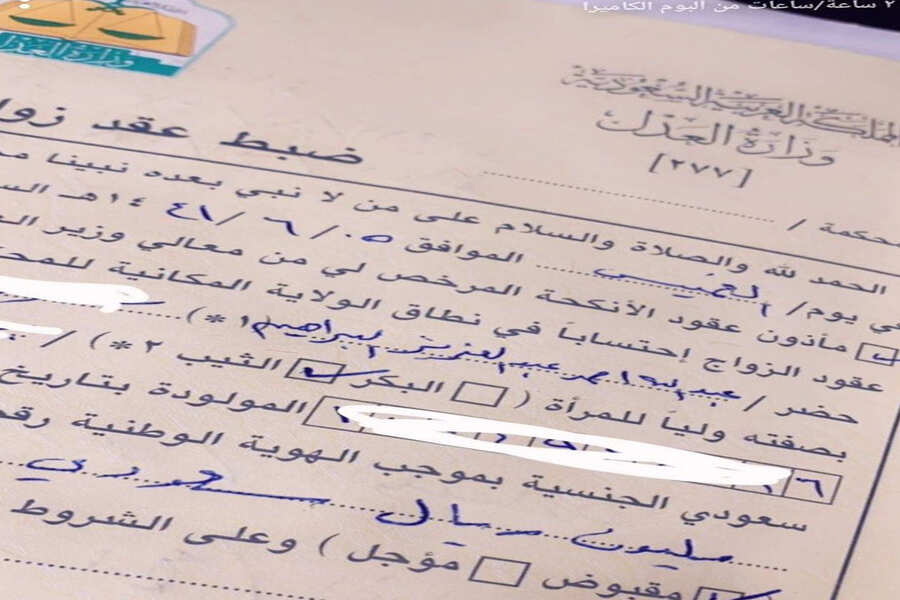 ٢ ساعة/ساعات من ألبوم الكاميرا
وزارة العدل
المملكة العربية السعودية
وزارة العدل
[٢٧٧]
محكمة /
ضبط عقد زوا
الحمد لله والصلاة والسلام على من لا نبي بعده نبينا
في يوم/ الخميس الموافق ٠٥ / ٦ / ١٤٤١ هـ
مأذون عقود الأنكحة المرخص لي من معالي وزير
عقود الزواج إحتساباً في نطاق الولاية المكانية للمح
حضر / عبدالعزيز ابراهيم (*١
بصفته ولياً للمرأة ( البكر الثيب ٢*) /
٦ المولودة بتاريخ
سعودي الجنسية بموجب الهوية الوطنية رقم
مليون ريال سعودي
مقبوض مؤجل ) وعلى الشروط